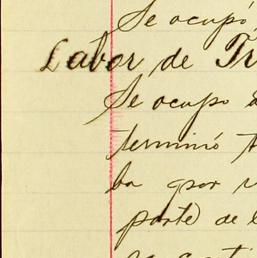 Se ocupó
Labor de Tr
Se ocupo
terminó t
ba por
parte de l